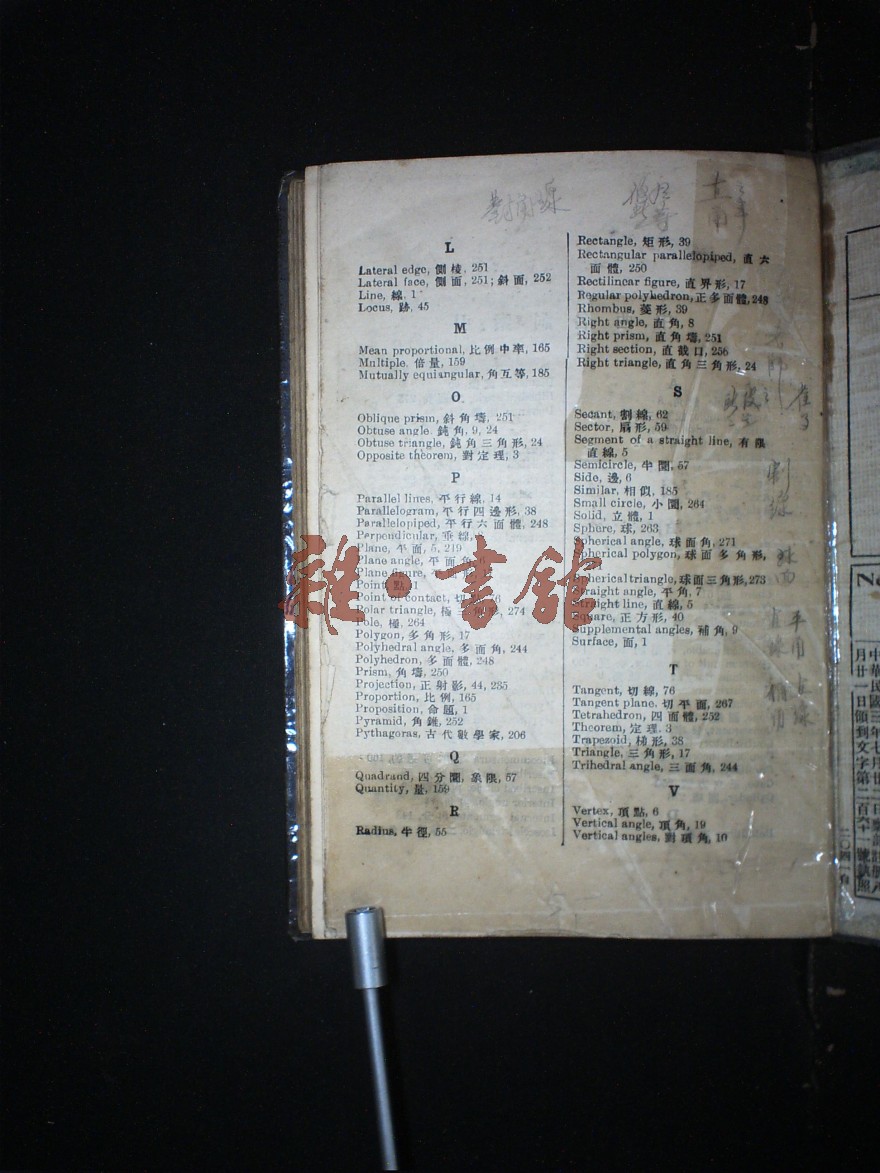 對角線
L
Lateral edge, 側棱, 251
Lateral face, 側面, 251; 斜面, 252
Line, 線, 1
Locus, 跡, 45
M
Mean proportional, 比例中率, 165
Multiple, 倍量, 159
Mutually equiangular, 角互等, 185
O
Oblique prism, 斜角壔, 251
Obtuse angle, 鈍角, 9, 24
Obtuse triangle, 鈍角三角形, 24
Opposite theorem, 對定理, 3
P
Parallel lines, 平行線, 14
Parallelogram, 平行四邊形, 38
Parallelopiped, 平行六面體, 248
Perpendicular, 垂線,
Plane, 平面, 5, 219
Plane angle, 平面角,
Plane figure,
Point, 點, 1
Point of contact, 切
Polar triangle, 極三角形, 274
Pole, 極, 264
Polygon, 多角形, 17
Polyhedral angle, 多面角, 244
Polyhedron, 多面體, 248
Prism, 角壔, 250
Projection, 正射影, 44, 235
Proportion, 比例, 165
Proposition, 命題, 1
Pyramid, 角錐, 252
Pythagoras, 古代數學家, 206
Q
Quadrand, 四分圜, 象限, 57
Quantity, 量, 159
R
Radius, 半徑, 55
Rectangle, 矩形, 39
Rectangular parallelopiped, 直六
面體, 250
Rectilinear figure, 直界形, 17
Regular polyhedron, 正多面體, 248
Rhombus, 菱形, 39
Right angle, 直角, 8
Right prism, 直角壔, 251
Right section, 直截口, 256
Right triangle, 直角三角形, 24
S
Secant, 割線, 62
Sector, 扇形, 59
Segment of a straight line, 有限
直線, 5
Semicircle, 半圜, 57
Side, 邊, 6
Similar, 相似, 185
Small circle, 小圜, 264
Solid, 立體, 1
Sphere, 球, 263
Spherical angle, 球面角, 271
Spherical polygon, 球面多角形,
Spherical triangle, 球面三角形, 273
Straight angle, 平角, 7
Straight line, 直線, 5
Square, 正方形, 40
Supplemental angles, 補角, 9
Surface, 面, 1
T
Tangent, 切線, 76
Tangent plane, 切平面, 267
Tetrahedron, 四面體, 252
Theorem, 定理, 3
Trapezoid, 梯形, 38
Triangle, 三角形, 17
Trihedral angle, 三面角, 244
V
Vertex, 頂點, 6
Vertical angle, 頂角, 19
Vertical angles, 對頂角, 10
割線
球面
平角
直線
雜·書館
中華民國三年七月廿
月廿一日領到文字第二百六十一號執照